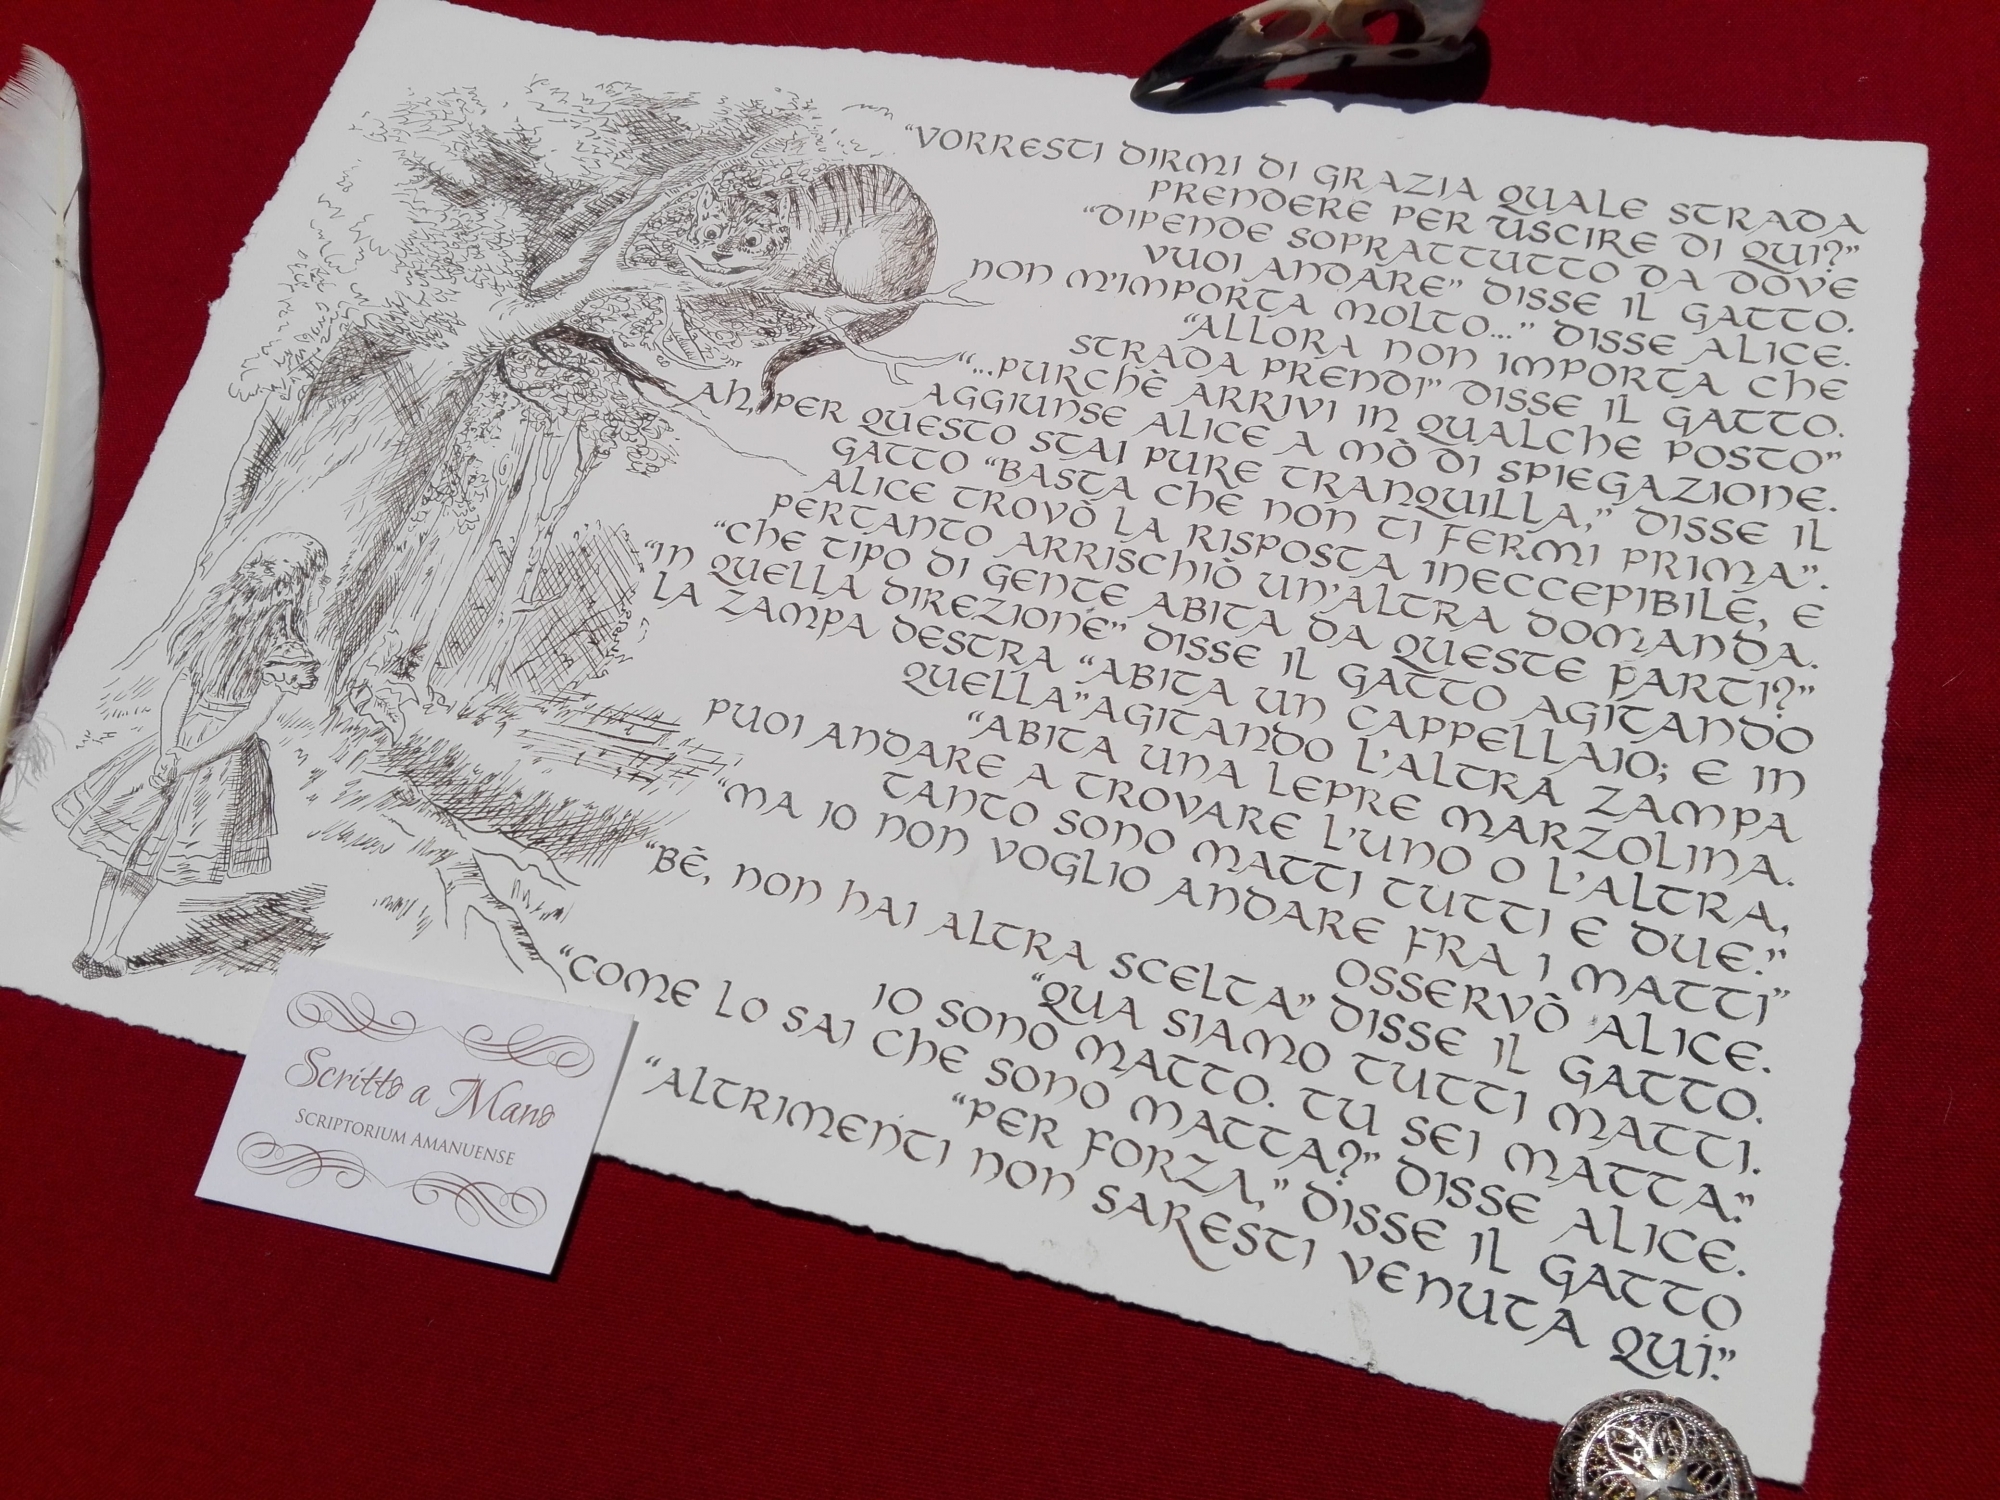 “VORRESTI DIRMI DI GRAZIA QUALE STRADA
PRENDERE PER USCIRE DI QUI?”
“DIPENDE SOPRATTUTTO DA DOVE
VUOI ANDARE” DISSE IL GATTO.
NON M'IMPORTA MOLTO...” DISSE ALICE.
“ALLORA NON IMPORTA CHE
STRADA PRENDI” DISSE IL GATTO.
“...PURCHÈ ARRIVI IN QUALCHE POSTO”
AGGIUNSE ALICE A MÒ DI SPIEGAZIONE.
AH, PER QUESTO STAI PURE TRANQUILLA,” DISSE IL
GATTO “BASTA CHE NON TI FERMI PRIMA”.
ALICE TROVÒ LA RISPOSTA INECCEPIBILE, E
PERTANTO ARRISCHIÒ UN'ALTRA DOMANDA.
“CHE TIPO DI GENTE ABITA DA QUESTE PARTI?”
“IN QUELLA DIREZIONE” DISSE IL GATTO AGITANDO
LA ZAMPA DESTRA “ABITA UN CAPPELLAIO; E IN
QUELLA”AGITANDO L'ALTRA ZAMPA
“ABITA UNA LEPRE MARZOLINA.
PUOI ANDARE A TROVARE L'UNO O L'ALTRA,
TANTO SONO MATTI TUTTI E DUE.”
“MA IO NON VOGLIO ANDARE FRA I MATTI”
OSSERVÒ ALICE.
“BÈ, NON HAI ALTRA SCELTA” DISSE IL GATTO.
“QUA SIAMO TUTTI MATTI.
IO SONO MATTO. TU SEI MATTA.”
“COME LO SAI CHE SONO MATTA?” DISSE ALICE.
“PER FORZA,” DISSE IL GATTO
“ALTRIMENTI NON SARESTI VENUTA QUI.”
Scritto a Mano
SCRIPTORIUM AMANUENSE